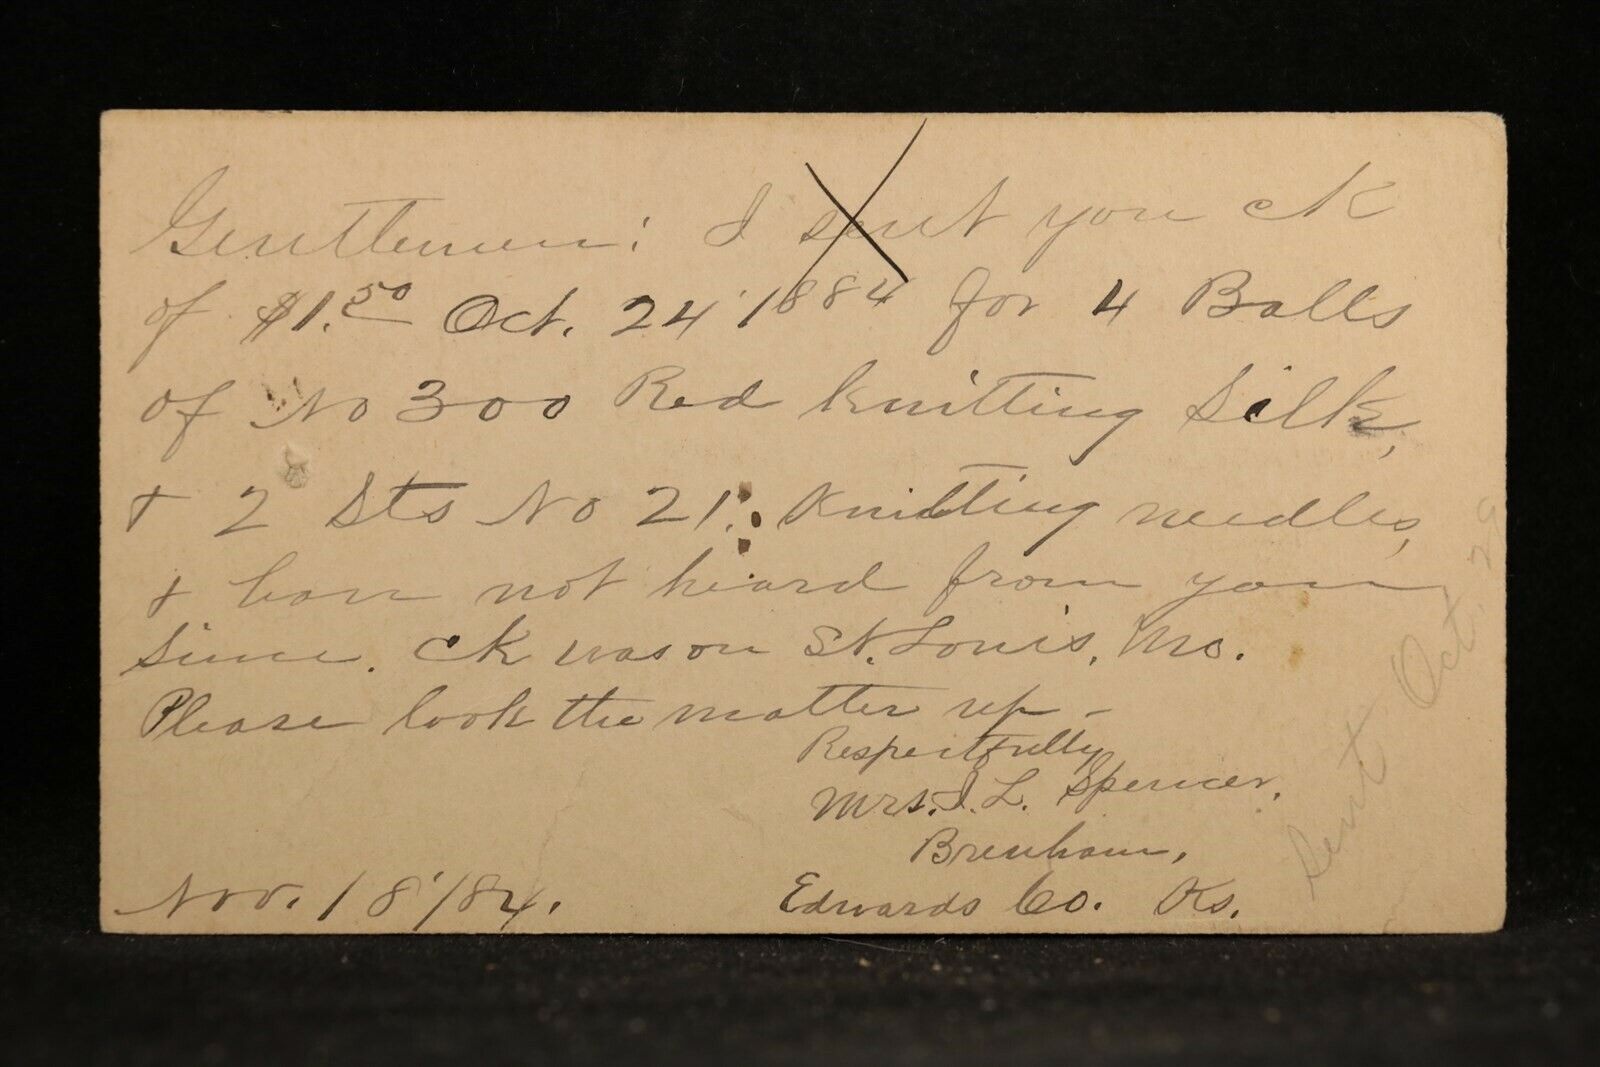 Gentlemen: I sent you ck
of $1.50 Oct. 24 '1884 for 4 Balls
of No 300 Red knitting Silk,
+ 2 Sts No 21. Knitting needles,
+ have not heard from you
since. Ck was on St. Louis, Mo.
Please look the matter up -
Respectfully
Mrs. I. L. Spencer,
Brenham,
Edwards Co. Ks.
Nov. 18 '/84.
Sent Oct. 29